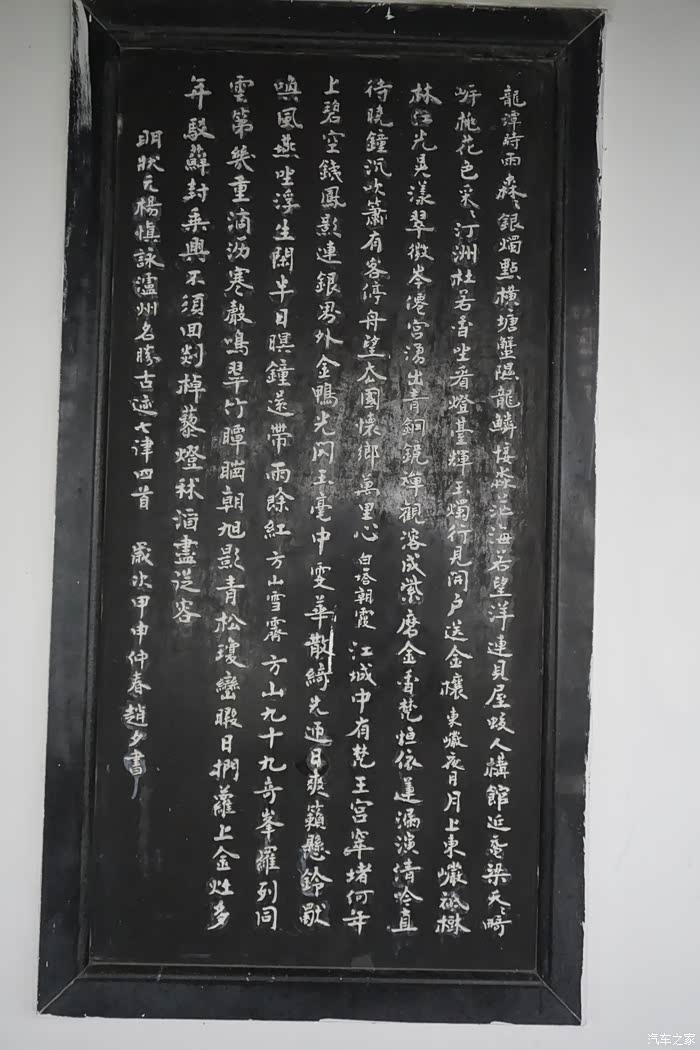 龍潭時雨森〻銀燭點橫塘蟹隰龍鱗接淼茫海若望洋連貝屋蛟人構館近黿梁夭〻畸
岸桃花色采〻汀洲杜若香坐看燈臺輝玉燭行見同戶送金穰 東巖夜月 月上東巖祗樹
林江光晃漾翠微岑僊宮湧出青銅鏡禪觀溶成紫磨金香梵恒依蓮漏演清吟直
待曉鐘沉吹簫有客停舟望去國懷鄉萬里心 白塔朝霞 江城中有梵王宮窣堵何年
上碧空錢鳳影連銀外金鴨光閃玉毫中雯華散綺先迎日爽籟懸鈴歇
嗅風燕坐浮生閑半日暝鐘還帶雨餘紅 方山雪霽 方山九十九奇峯羅列同
雲第幾重滴瀝寒聲鳴翠竹朝旭影青松瓊巒暇日捫蘿上金灶多
年駁蘚封乘興不須回剡棹藜燈秫酒盡從容
明狀元楊慎詠瀘州名勝古迹七律四首 歲次甲申仲春趙夕書
汽车之家